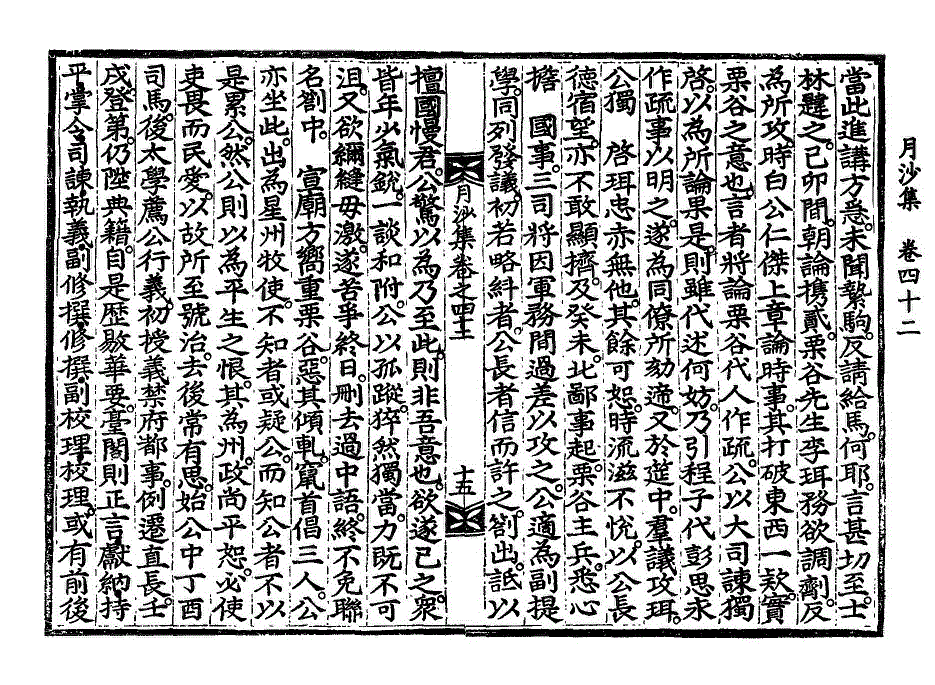 月沙集　卷四十二
當此進講方急。未聞縶駒。反請給馬。何耶。言甚切至。士
林韙之。己卯間。朝論携貳。栗谷先生李珥務欲調劑。反
為所攻。時白公仁傑上章論時事。其打破東西一款。實
栗谷之意也。言者將論栗谷代人作疏。公以大司諫獨
啓。以為所論果是。則雖代述何妨。乃引程子代彭思永
作疏事以明之。遂為同僚所劾遞。又於筵中。羣議攻珥。
公獨　啓珥忠亦無他。其餘可恕。時流滋不悅。以公長
德宿望。亦不敢顯擠。及癸未。北鄙事起。栗谷主兵。悉心
擔　國事。三司將因軍務間過差以攻之。公適為副提
學。同列發議。初若略糾者。公長者信而許之。劄出。詆以
月沙集卷之四十二
十五
擅國慢君。公驚以為乃至此。則非吾意也。欲遂已之。衆
皆年少氣銳。一談和附。公以孤蹤。猝然獨當。力既不可
沮。又欲彌縫毋激。遂苦爭終日。刪去過中語。終不免聯
名劄中。　宣廟方嚮重栗谷。惡其傾軋。竄首倡三人。公
亦坐此。出為星州牧使。不知者或疑公。而知公者不以
是累公。然公則以為平生之恨。其為州。政尚平恕。必使
吏畏而民愛。以故所至號治。去後常有思。始公中丁酉
司馬。後太學薦公行義。初授義禁府都事。例遷直長。壬
戌。登第。仍陞典籍。自是歷敭華要。臺閣則正言獻納持
平掌令司諫執義。副修撰修撰副校理校理。或有前後